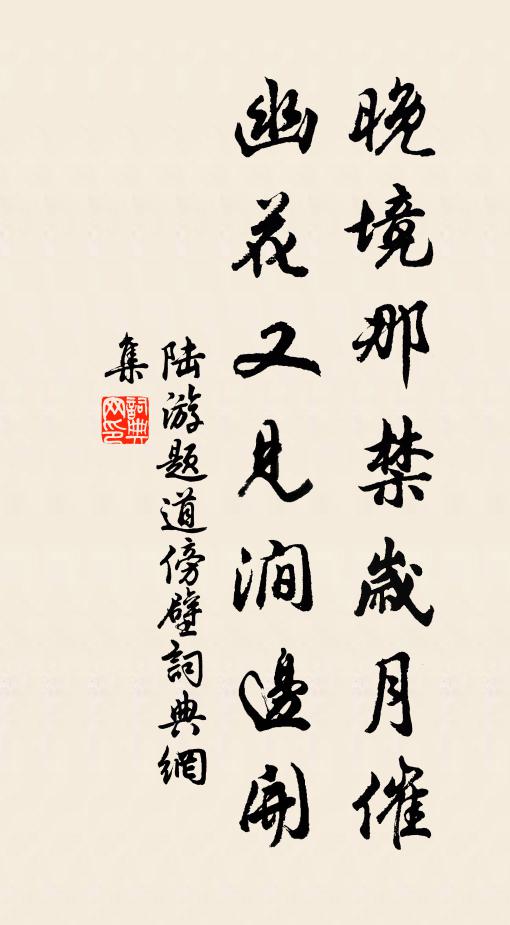 晚境那禁歲月催
幽花又見澗邊開
陆游题道傍壁詞典網
集
詞典网印